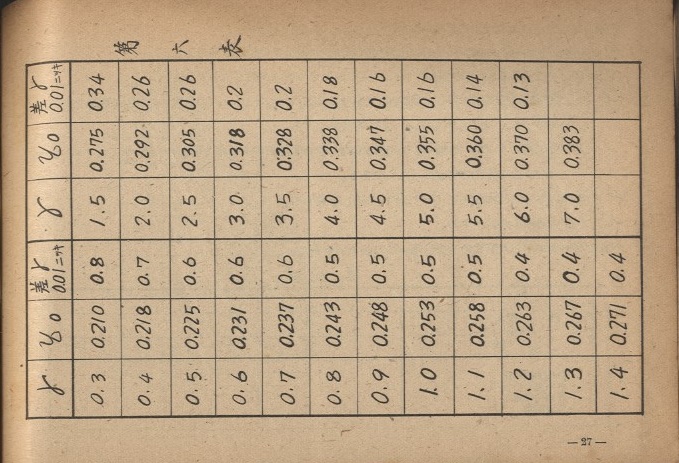 第六表
γ η0 差γ 0.01ニツキ γ η0 差γ 0.01ニツキ
0.3 0.210 0.8 1.5 0.275 0.34
0.4 0.218 0.7 2.0 0.292 0.26
0.5 0.225 0.6 2.5 0.305 0.26
0.6 0.231 0.6 3.0 0.318 0.2
0.7 0.237 0.6 3.5 0.328 0.2
0.8 0.243 0.5 4.0 0.338 0.18
0.9 0.248 0.5 4.5 0.347 0.16
1.0 0.253 0.5 5.0 0.355 0.16
1.1 0.258 0.5 5.5 0.360 0.14
1.2 0.263 0.4 6.0 0.370 0.13
1.3 0.267 0.4 7.0 0.383
1.4 0.271 0.4
—27—